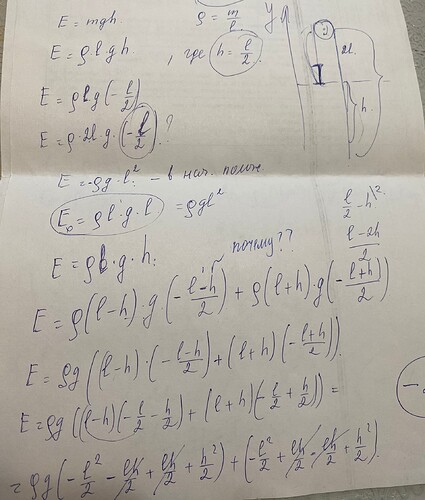 E = mgh
ρ = m/l
E = ρ·l·g h , где h = l/2.
E = ρlg(-l/2)
E = ρ·2l·g·(-l/2)?
E = -ρg·l² – в нач. полож.
E₀ = ρl·g·l = ρgl²
E = ρl·g·h.
почему??
E = ρ(l-h)·g(-(l-h)/2) + ρ(l+h)·g(-(l+h)/2)
E = ρg((l-h)·(-(l-h)/2) + (l+h)(-(l+h)/2)).
E = ρg((l-h)(-l/2 - h/2) + (l+h)(-l/2 + h/2)) =
= ρg(-l²/2 - lh/2 + lh/2 + h²/2) + (-l²/2 + lh/2 - lh/2 + h²/2).
y
2l
h
l/2 - h\2.
(l-2h)/2